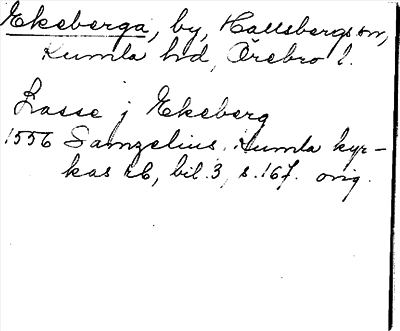 Ekeberga, by, Hallsbergs sn,
Kumla hd, Örebro l.
Lasse j Ekeberg
1556 Samzelius. Kumla kyr-
kas rb, bil. 3, s. 167. orig.